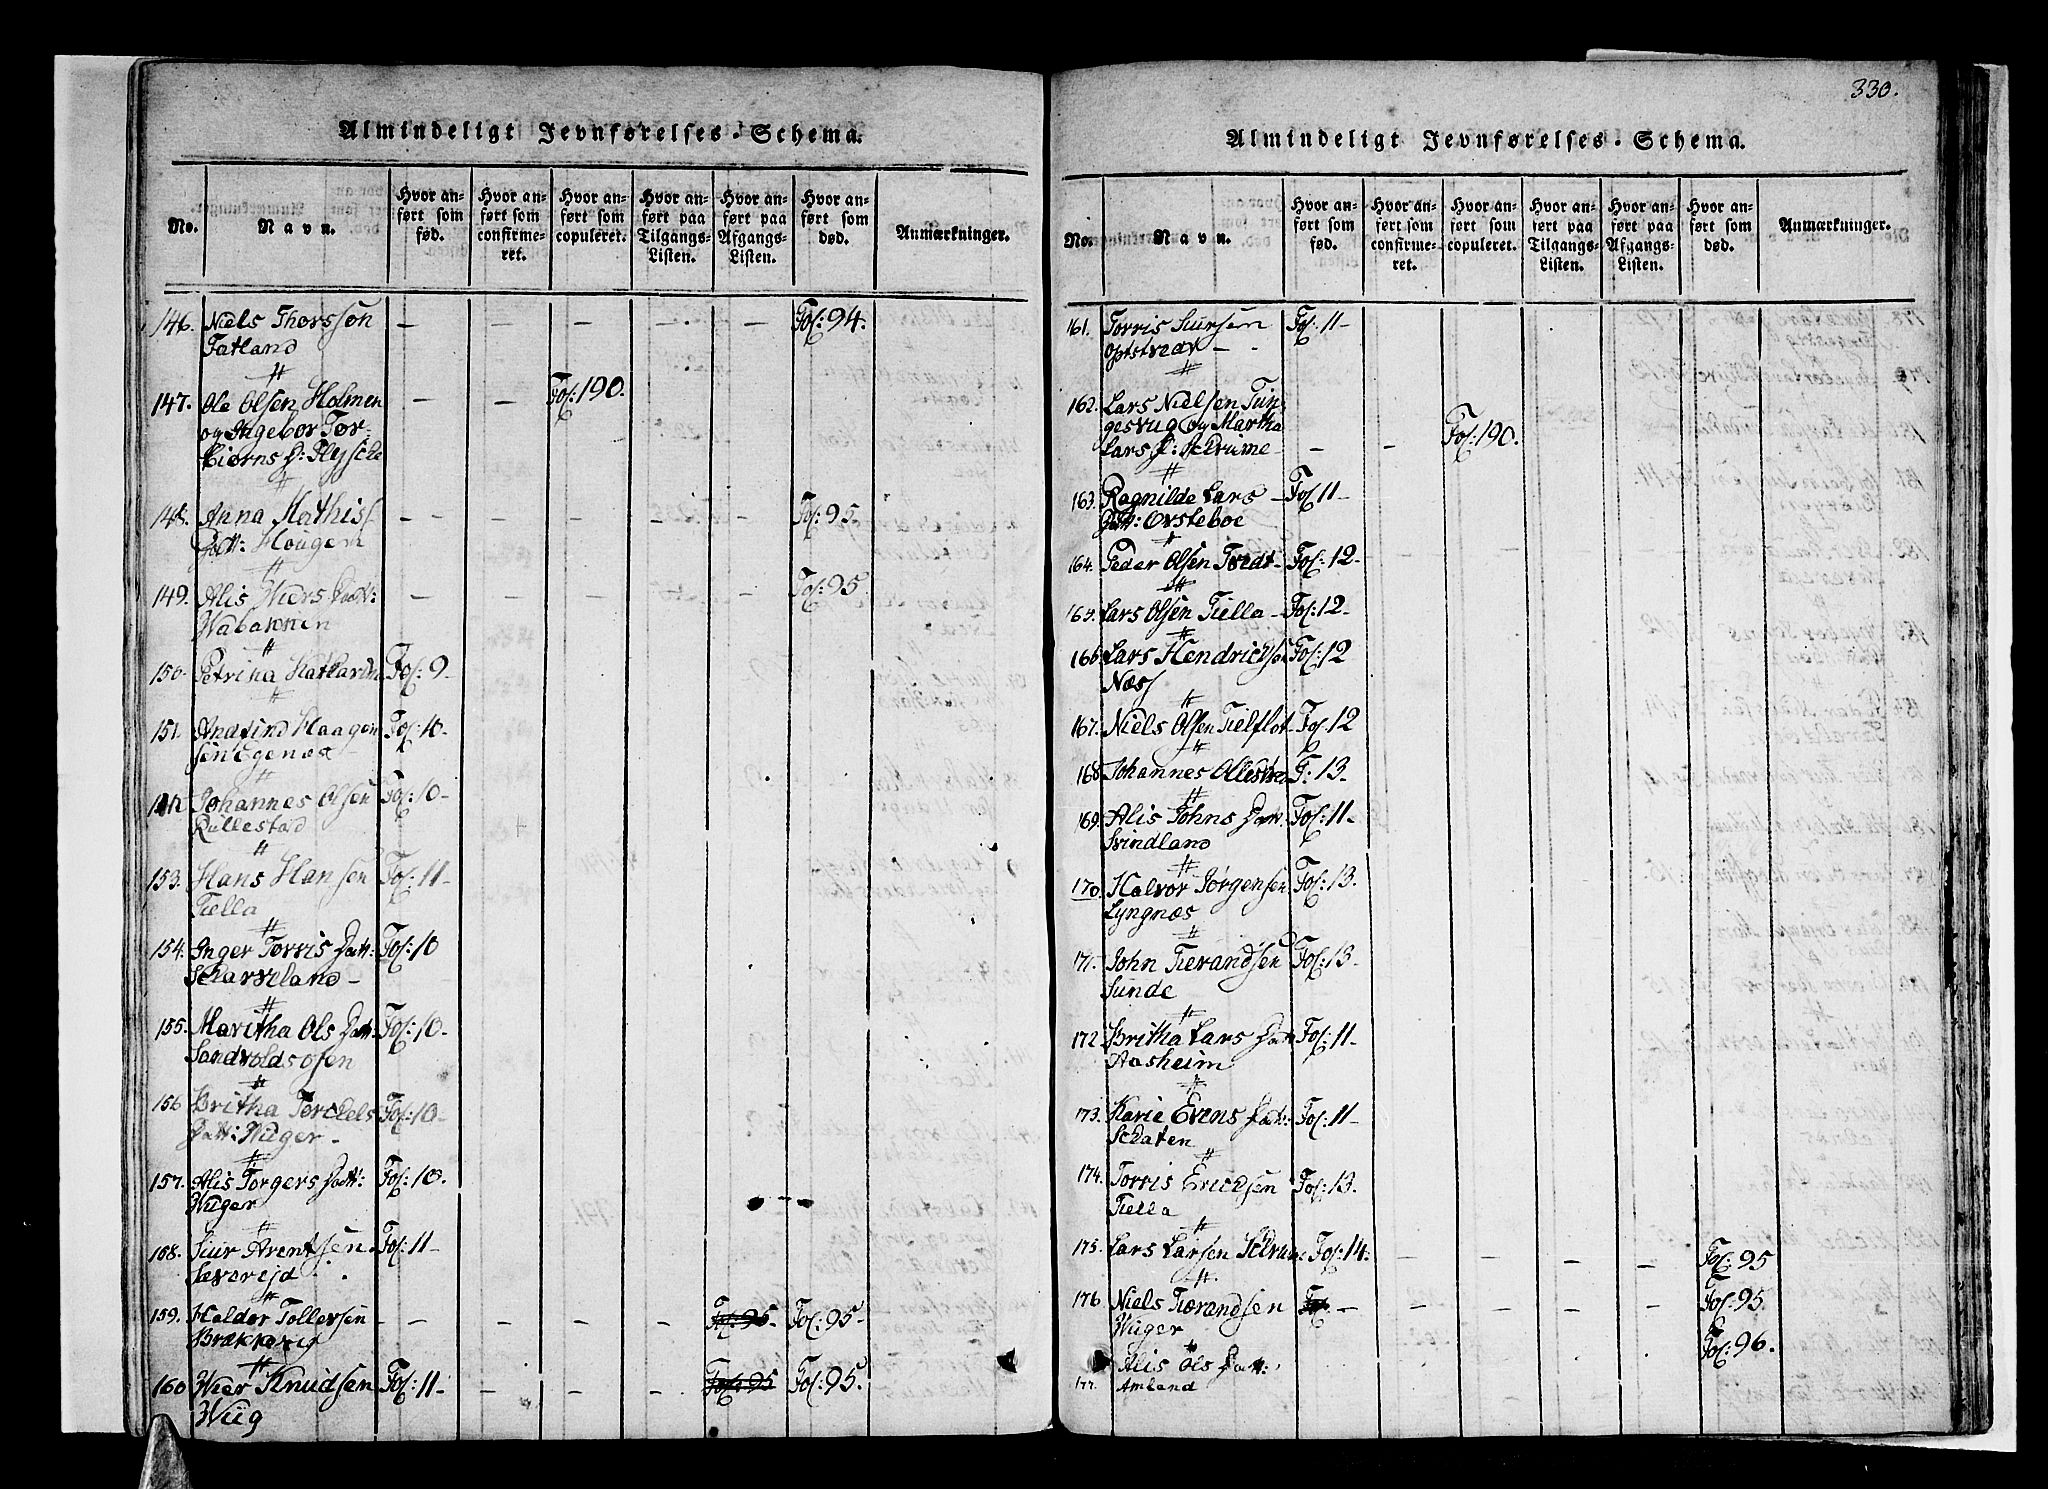 Almindeligt Jevnførelses-Schema.
No.
Navn.
Hvor anført som fød.
Hvor anført som confirmeret.
Hvor anført som copuleret.
Hvor anført paa Tilgangs-Listen.
Hvor anført paa Afgangs-Listen.
Hvor anført som død.
Anmærkninger.
146. Niels Thorssøn — — — — — Fol: 94.
Fatland
147. Ole Olsen Holmen — — Fol: 190.
og Ingebor Tor-
biørns D:
148. Anna Mathis — — — — — Fol: 95.
Datt: Hougen
149. Alis Datt: — — — — — Fol: 95
150. Petrina Katharina Fol: 9-
151. Anafind Haagen Fol: 10-
sen Egenæs
Johannes Olsen Fol: 10-
Rullestad
153. Hans Hansen Fol: 11-
Tiella
154. Inger Torris Datt: Fol: 10
Scharveland-
155. Maritha Ols Datt: Fol: 10-
Sandvoldsosen
156 Britha Torckels Fol: 10-
Datt: Wiiger-
157. Alis Torgers Datt: Fol: 10.
Wiiger
158. Siur Arentsen Fol: 11-
Sævareid
159. Haldor Tollevsen — — — — Fol: 95- Fol: 95-
Brækkevig
160 Wier Knudsen Fol: 11- — — — Fol: 95 Fol: 95.
Wiig
330.
Almindeligt Jevnførelses-Schema.
No.
Navn.
Hvor anført som fød.
Hvor anført som confirmeret.
Hvor anført som copuleret.
Hvor anført paa Tilgangs-Listen.
Hvor anført paa Afgangs-Listen.
Hvor anført som død.
Anmærkninger.
161. Torris Siursen Fol: 11-
Optvedt
162. Lars Nielsen Tun-
gesvig og Martha
Lars D: — — Fol: 190.
163. Ragnilde Lars Fol: 11-
Datt: Ørsteboe
164. Peder Olsen Tvedt- Fol: 12-
165. Lars Olsen Tiella- Fol: 12-
166 Lars Hendrichsen Fol: 12
Næss
167. Niels Olsen Tielflot- Fol: 12
168 Johannes F: 13.
169. Alis Johns Datt: Fol: 11-
Svindland
170. Halvor Jørgensen Fol: 13.
Lyngnæs
171. John Tierandsen Fol: 13-
Sunde
172. Britha Lars Datt Fol: 11-
Aasheim
173. Karie Evens Datt: Fol: 11-
Schaten
174. Torris Erichsen Fol: 13.
Tiella
175. Lars Larsen Fol: 14. — — — — Fol: 95
176. Niels Tierandsen — — — — — Fol: 95.
Wiiger
177. Alis Ols Datt: Fol: 96.
Amland